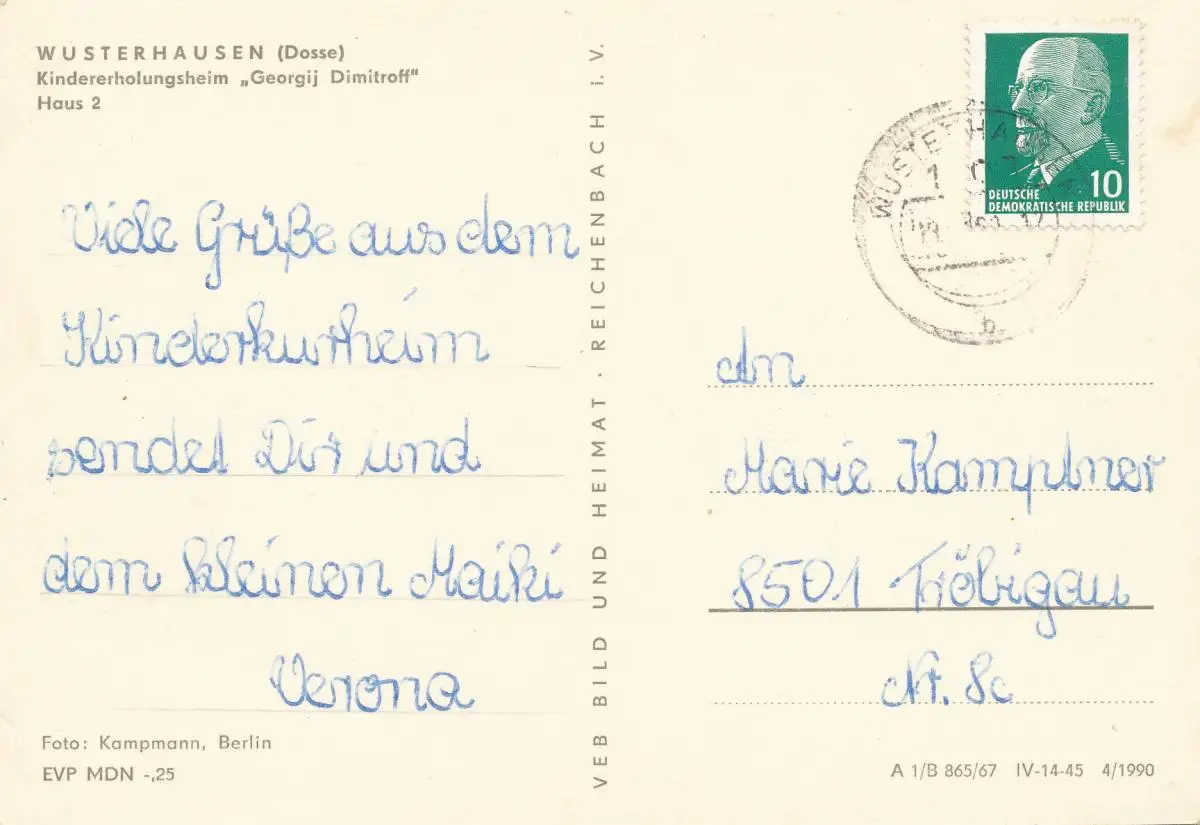 WUSTERHAUSEN (Dosse)
Kindererholungsheim „Georgij Dimitroff“
Haus 2
Viele Grüße aus dem
Kinderkurheim
sendet Dir und
dem kleinen Maiki
Verona
Foto: Kampmann, Berlin
EVP MDN -,25
VEB BILD UND HEIMAT · REICHENBACH i. V.
10
DEUTSCHE
DEMOKRATISCHE REPUBLIK
b
An
Marie Kamptner
8501 Tröbigau
Nr. 8c
A 1/B 865/67 IV-14-45 4/1990